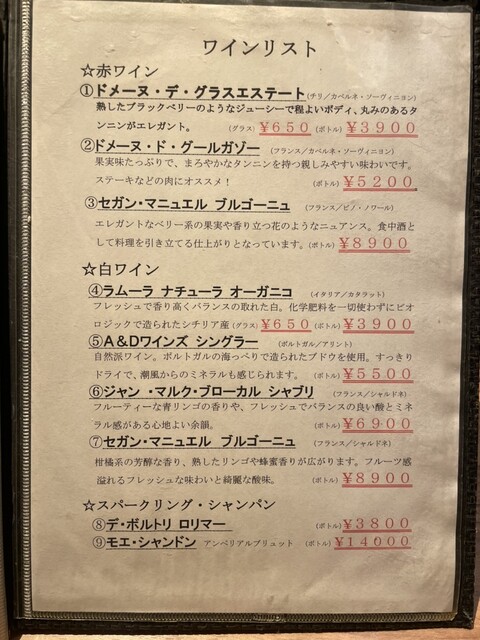 ワインリスト
☆赤ワイン
①ドメーヌ・デ・グラスエステート (チリ/カベルネ・ソーヴィニヨン)
熟したブラックベリーのようなジューシーで程よいボディ、丸みのあるタ
ンニンがエレガント。 (グラス) ¥650 (ボトル) ¥3900
②ドメーヌ・ド・グールガゾー (フランス/カベルネ・ソーヴィニョン)
果実味たっぷりで、まろやかなタンニンを持つ親しみやすい味わいです。
ステーキなどの肉にオススメ! (ボトル) ¥5200
③セガン・マニュエル ブルゴーニュ (フランス/ピノ・ノワール)
エレガントなベリー系の果実や香り立つ花のようなニュアンス。食中酒と
して料理を引き立てる仕上がりとなっています。(ボトル) ¥8900
☆白ワイン
④ラムーラ ナチューラ オーガニコ (イタリア/カタラット)
フレッシュで香り高くバランスの取れた白。化学肥料を一切使わずにビオ
ロジックで造られたシチリア産 (グラス) ¥650 (ボトル) ¥3900
⑤A&Dワインズ シングラー (ポルトガル/アリント)
自然派ワイン。ポルトガルの海っぺりで造られたブドウを使用。すっきり
ドライで、潮風からのミネラルも感じられます。 (ボトル) ¥5500
⑥ジャン ・マルク・ブローカル シャブリ (フランス/シャルドネ)
フルーティーな青リンゴの香りや、フレッシュでバランスの良い酸とミネ
ラル感がある心地よい余韻。 (ボトル) ¥6900
⑦セガン・マニュエル ブルゴーニュ (フランス/シャルドネ)
柑橘系の芳醇な香り、熟したリンゴや蜂蜜香りが広がります。フルーツ感
溢れるフレッシュな味わいと綺麗な酸味。 (ボトル) ¥8900
☆スパークリング・シャンパン
⑧デ・ボルトリ ロリマー (ボトル) ¥3800
⑨モエ・シャンドン アンペリアルブリュット (ボトル) ¥14000